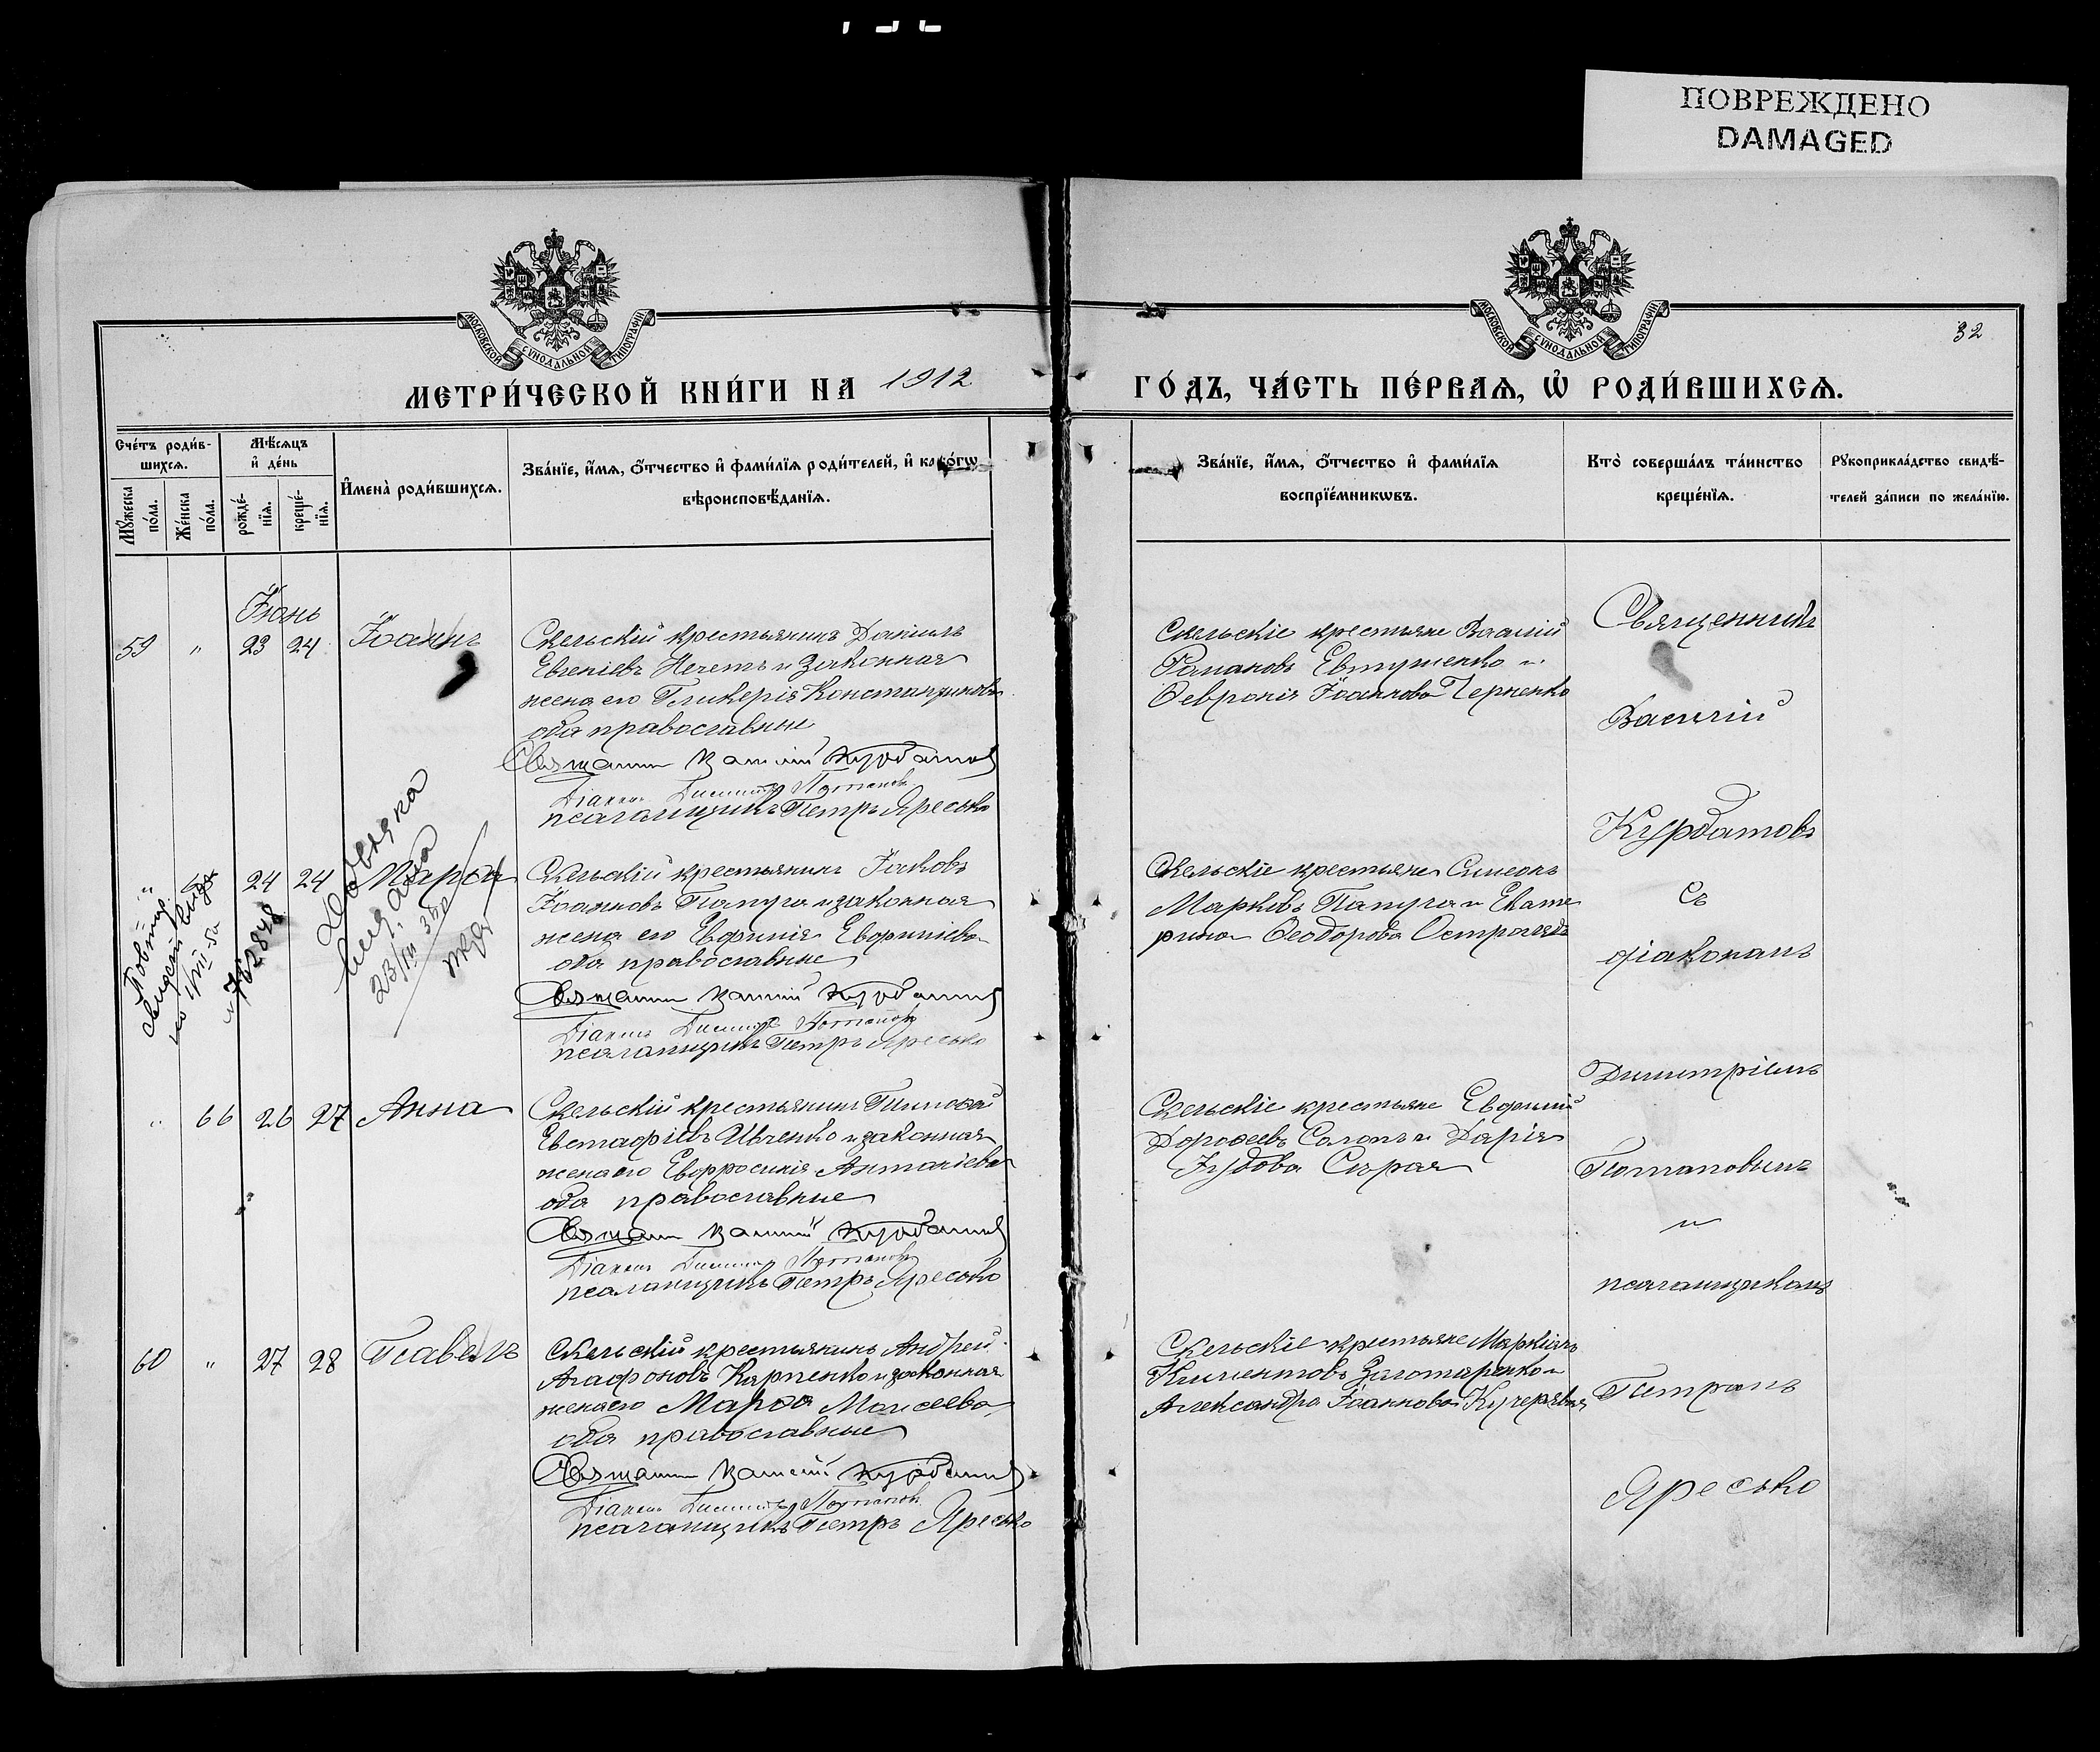 ПОВРЕЖДЕНО
DAMAGED
МОСКОВСКОЙ СѴНОДАЛЬНОЙ ТИПОГРАФІИ
МОСКОВСКОЙ СѴНОДАЛЬНОЙ ТИПОГРАФІИ
32
МЕТРИ́ЧЕСКОЙ КНИ́ГИ НА 1912
ГО́ДЪ, ЧА́СТЬ ПЕ́РВАѦ, Ѡ҆ РОДИ́ВШИХСѦ.
Сче́тъ роди́в-
шихсѧ.
Мꙋ́жеска
по́ла.
Же́нска
по́ла.
Мѣ́сѧцъ
и҆ де́нь
рожде́-
нїѧ.
креще́-
нїѧ.
И҆мена̀ роди́вшихсѧ.
Зва́нїе, и҆́мѧ, ѻ҆́тчество и҆ фами́лїѧ роди́телей, и҆ како́гѡ
вѣроисповѣ́данїѧ.
Зва́нїе, и҆́мѧ, ѻ҆́тчество и҆ фами́лїѧ
воспрїе́мникѡвъ.
Кто̀ соверша́лъ та́инство
креще́нїѧ.
Рꙋкоприкла́дство свидѣ́-
телей за́писи по жела́нїю.
Іюнь
59 " 23 24 Іоаннъ
Скельскій крестьянинъ Даніилъ
Евгеніевъ Нечетъ и законная
жена его Гликерія Константинова
оба православные
Священникъ Василій Курбатовъ
Діаконъ Димитрій Потаповъ
псаломщикъ Петръ Яресько
Скельскіе крестьяне Василій
Романовъ Евтушенко и
Феѵронія Іоаннова Черненко
" 24 24 Марѳа
Скельскій крестьянинъ Іаковъ
Іоанновъ Папуга и законная
жена его Евфимія Евфиміева
оба православные
Священникъ Василій Курбатовъ
Діаконъ Димитрій Потаповъ
псаломщикъ Петръ Яресько
Скельскіе крестьяне Симеонъ
Марковъ Папуга и Екате
рина Ѳеодорова
Довідка
вид.
" 66 26 27 Анна
Скельскій крестьянинъ Тимофей
Евстафіевъ Ивченко и законная
жена его Евфросинія Антоніева
оба православные
Священникъ Василій Курбатовъ
Діаконъ Димитрій Потаповъ
псаломщикъ Петръ Яресько
Скельскіе крестьяне Евфимій
Дороѳеевъ Солопъ и Дарія
Іудова Сирая
60 " 27 28 Павелъ
Скельскій крестьянинъ Андрей
Агафоновъ Карпенко и законная
жена его Марѳа Моисеева
оба православные
Священникъ Василій Курбатовъ
Діаконъ Димитрій Потаповъ
псаломщикъ Петръ Яресько
Скельскіе крестьяне Маркіанъ
Климентовъ Золотаренко и
Александра Іоаннова Кучерявая
Священникъ
Василій
Курбатовъ
съ
діакономъ
Димитріемъ
Потаповымъ
и
псаломщикомъ
Петромъ
Яресько